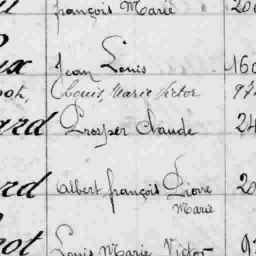 françois Marie 20
ux Jean Louis 160
ook, Louis, Marie Victor 972
ard Prosper Claude 24
rd Albert françois 2
Marie
ot Louis Marie Victor 9